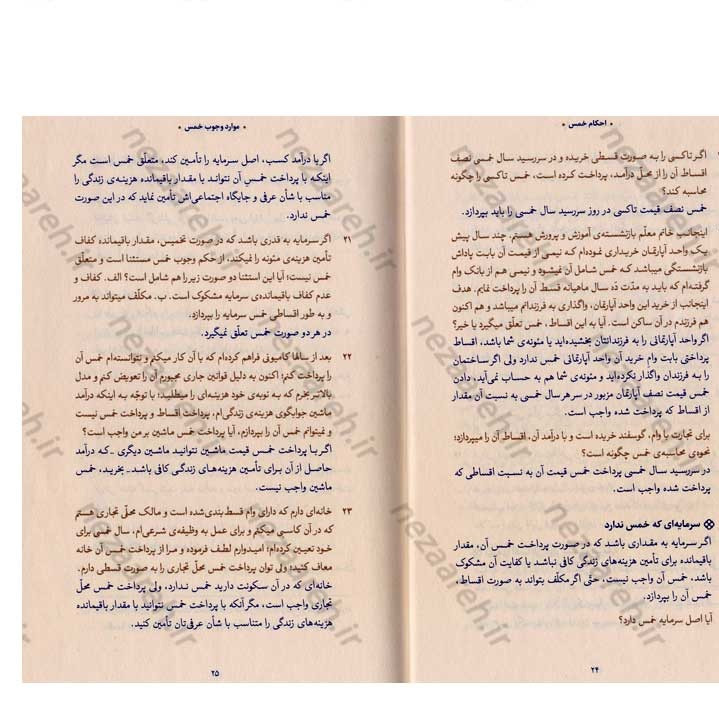 احکام خمس •
اگر تاکسی را به صورت قسطی خریده و در سررسید سال خمسی نصف
اقساط آن را از محلّ درآمد، پرداخت کرده است، خمس تاکسی را چگونه
محاسبه کند؟
خمس نصف قیمت تاکسی در روز سررسید سال خمسی را باید بپردازد.
اینجانب خانم معلّم بازنشسته‌ی آموزش و پرورش هستم. چند سال پیش
یک واحد آپارتمان خریداری نموده‌ام که نیمی از قیمت آن بابت پاداش
بازنشستگی میباشد کـه خمس شامل آن نمیشود و نیمی هم از بانک وام
گرفته‌ام که باید به مدّت ده سال ماهیانه قسط آن را پرداخت نمایم. هدف
اینجانب از خرید این واحد آپارتمان، واگذاری به فرزندانم میباشد و هم اکنون
هم فرزندم در آن ساکن است. آیا به این اقساط، خمس تعلّق میگیرد یا خیر؟
اگر واحد آپارتمانی را به فرزندانتان بخشیده‌اید یا مئونه‌ی شما باشد، اقساط
پرداختی بابت وام خرید آن واحد آپارتمانی خمس ندارد ولی اگر ساختمان
را بـه فرزندان واگذار نکرده‌اید و مئونه‌ی شما هم به حساب نمی‌آید، دادن
خمس قیمت نصف آپارتمان مزبور در سر هر سال خمسی به نسبت آن مقدار
از اقساط که پرداخت شده واجب است.
برای تجارت با وام، گوسفند خریده است و با درآمد آن، اقساط آن را میپردازد؛
نحوه‌ی محاسبه‌ی خمس چگونه است؟
در سررسید سال خمسی پرداخت خمس قیمت آن به نسبت اقساطی که
پرداخت شده واجب است.
سرمایه‌ای که خمس ندارد
اگر سرمایه به مقـداری باشد که در صورت پرداخت خمس آن، مقدار
باقیمانده برای تأمین هزینه‌های زندگی کافی نباشد یا کفایت آن مشکوک
باشد، خمس آن واجب نیست. حتّی اگر مکلّف بتواند به صورت اقساط،
خمس آن را بپردازد.
آیا اصل سرمایه خمس دارد؟
۲۴
• موارد وجوب خمس •
اگر با درآمد کسب، اصل سـرمایه را تأمیـن کند، متعلّق خمس اسـت مگر
اینکـه با پرداخت خمس آن نتواند با مقـدار باقیمانده هزینه‌ی زندگی را
مناسب با شأن عرفی و جایگاه اجتماعی‌اش تأمین نماید که در این صورت
خمس ندارد.
۲۱ اگر سرمایه به قدری باشد که در صورت تخمیس، مقدار باقیمانده کفاف
تأمین هزینه‌ی مئونه را نمیکند، از حکم وجوب خمس مستثنا است و متعلّق
خمس نیست؛ آیا این استثنا دو صورت زیر را هم شامل است؟ الف. کفاف و
عدم کفاف باقیمانده‌ی سرمایه مشکوک است. ب. مکلّف میتواند به مرور
و به طور اقساطی خمس سرمایه را بپردازد.
در هر دو صورت خمس تعلّق نمیگیرد.
۲۲ بعد از سالها کامیونی فراهم کرده‌ام که با آن کار میکنم و نتوانسته‌ام خمس آن
را پرداخت کنم؛ اکنون به دلیل قوانین جاری مجبورم آن را تعویض کنم و مدل
بالاتر بخرم که بـه نوبه‌ی خود هزینه‌ای را میطلبد؛ با توجّـه به اینکـه درآمد
ماشین جوابگوی هزینه‌ی زندگی‌ام، پرداخت اقساط و پرداخت خمس نیست
و نمیتوانم خمس آن را بپردازم، آیا پرداخت خمس ماشین بر من واجب است؟
اگـر بـا پرداخت خمس قیمت ماشین نتوانید ماشین دیگری ـ کـه درآمد
حاصل از آن بـرای تأمین هزینه‌هـای زندگی کافی باشد ـ بخرید، خمس
ماشین واجب نیست.
۲۳ خانه‌ای دارم که دارای وام قسط بندی‌شده است و مالک محلّ تجاری هستم
که در آن کاسبی میکنم و برای عمل به وظیفه‌ی شرعی‌ام، سال خمسی برای
خود تعیین کرده‌ام؛ امیدوارم لطف فرموده و مـرا از پرداخت خمس آن خانه
معاف کنید؛ ولی توان پرداخت خمس محلّ تجاری را به صورت قسطی دارم.
خانه‌ای که در آن سکونت دارید خمس نـدارد، ولی پرداخت خمس محلّ
تجاری واجب است، مگر آنکه با پرداخت خمس نتوانید با مقدار باقیمانده
هزینه‌های زندگی را متناسب با شأن عرفی‌تان تأمین کنید.
۲۵
nezaareh.ir